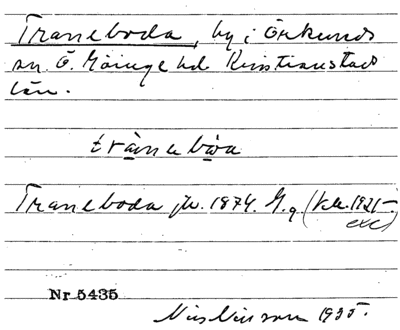 Traneboda, by i Örkeneds
sn. Ö. Göinge hd. Kristianstads
län.
tra̱neba̱
Traneboda jb. 1874. G.q (1921-
Nr 5435
Nils Nilsson 1935.